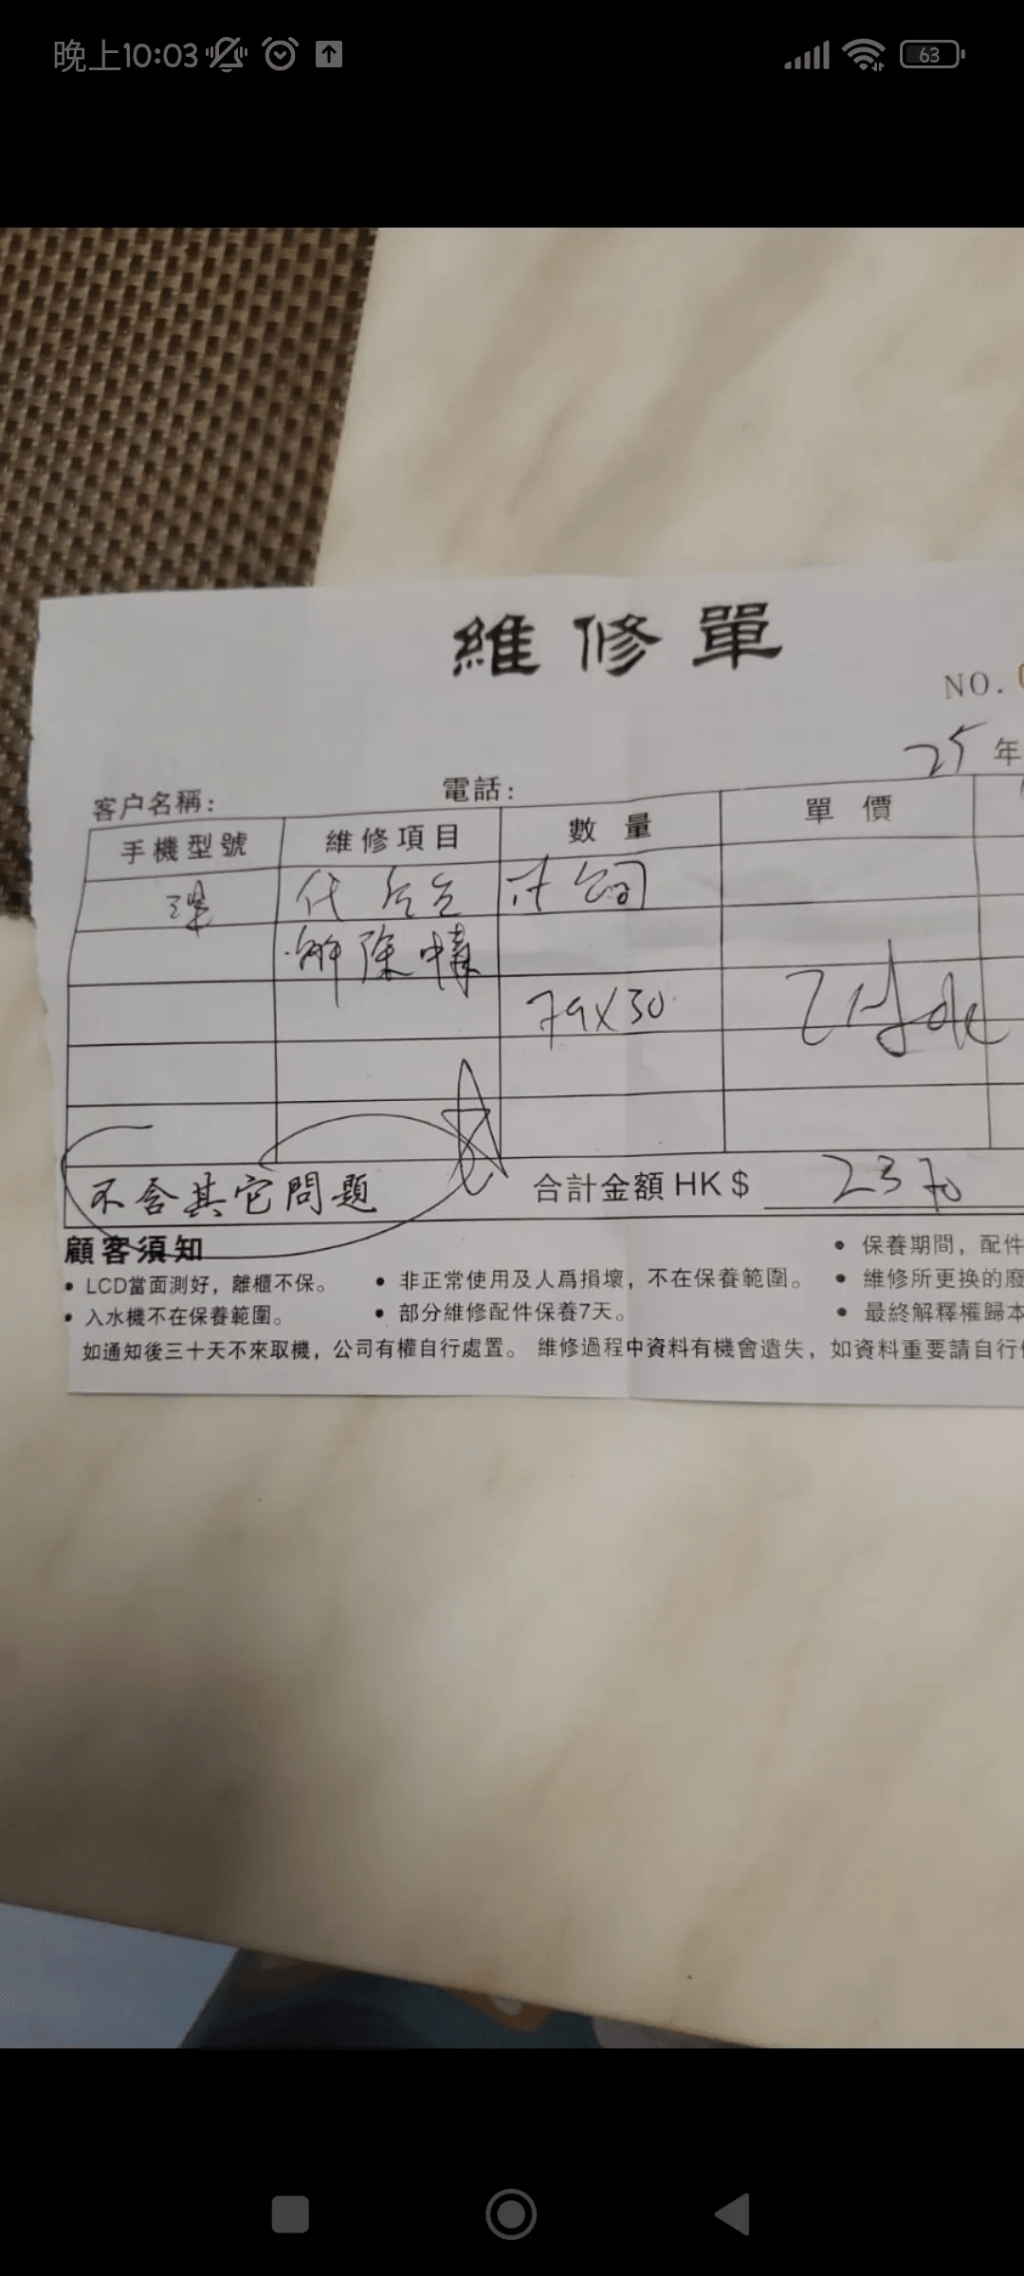 晚上10:03
63
維修單
NO.
25年
客户名稱: 電話:
手機型號 維修項目 數量 單價
代 公司
解除
79X30
不含其它問題 合計金額HK$ 2370
顧客須知
• LCD當面測好，離櫃不保。 • 非正常使用及人爲損壞，不在保養範圍。 • 保養期間，配件
• 入水機不在保養範圍。 • 部分維修配件保養7天。 • 維修所更換的廢
• 最終解釋權歸本
如通知後三十天不來取機，公司有權自行處置。 維修過程中資料有機會遺失，如資料重要請自行